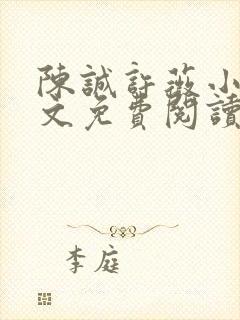 陳誠許薇小
文免費閱讀
李庭